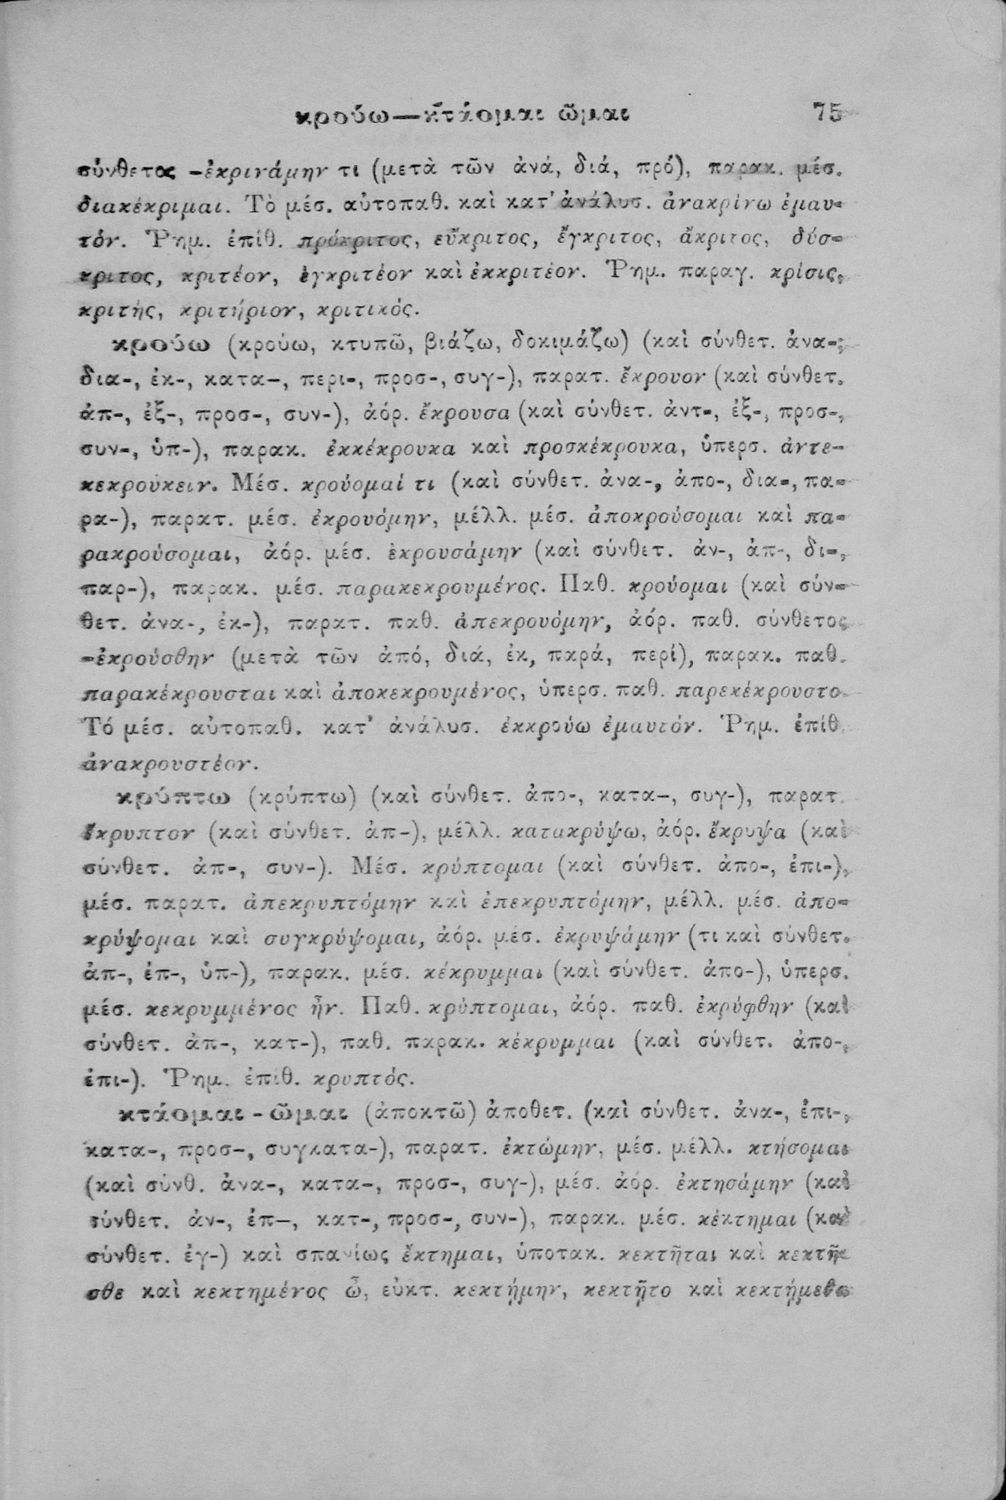 κρούω—κτάομαι ῶμαι 75
σύνθετος -ἐκρινάμην τι (μετὰ τῶν ἀνά, διά, πρό), παρακ. μέσ.
διακέκριμαι. Τὸ μέσ. αὐτοπαθ. καὶ κατ' ἀνάλυσ. ἀνακρίνω ἐμαυ-
τόν. Ῥημ. ἐπίθ. πρόκριτος, εὔκριτος, ἔγκριτος, ἄκριτος, δύσ-
κριτος, κριτέον, ἐγκριτέον καὶ ἐκκριτέον. Ῥημ. παραγ. κρίσις,
κριτής, κριτήριον, κριτικός.
κρούω (κρούω, κτυπῶ, βιάζω, δοκιμάζω) (καὶ σύνθετ. ἀνα-,
δια-, ἐκ-, κατα-, περι-, προσ-, συγ-), παρατ. ἔκρουον (καὶ σύνθετ.
ἀπ-, ἐξ-, προσ-, συν-), ἀόρ. ἔκρουσα (καὶ σύνθετ. ἀντ-, ἐξ-, προσ-,
συν-, ὑπ-), παρακ. ἐκκέκρουκα καὶ προσκέκρουκα, ὑπερσ. ἀντε-
κεκρούκειν. Μέσ. κρούομαί τι (καὶ σύνθετ. ἀνα-, ἀπο-, δια-, πα-
ρα-), παρατ. μέσ. ἐκρουόμην, μέλλ. μέσ. ἀποκρούσομαι καὶ πα-
ρακρούσομαι, ἀόρ. μέσ. ἐκρουσάμην (καὶ σύνθετ. ἀν-, ἀπ-, δι-,
παρ-), παρακ. μέσ. παρακεκρουμένος. Παθ. κρούομαι (καὶ σύν-
θετ. ἀνα-, ἐκ-), παρατ. παθ. ἀπεκρουόμην, ἀόρ. παθ. σύνθετος
-ἐκρούσθην (μετὰ τῶν ἀπό, διά, ἐκ, παρά, περί), παρακ. παθ.
παρακέκρουσται καὶ ἀποκεκρουμένος, ὑπερσ. παθ. παρεκέκρουστο.
Τό μέσ. αὐτοπαθ. κατ' ἀνάλυσ. ἐκκρούω ἐμαυτόν. Ῥημ. ἐπίθ.
ἀνακρουστέον.
κρύπτω (κρύπτω) (καὶ σύνθετ. ἀπο-, κατα-, συγ-), παρατ.
ἔκρυπτον (καὶ σύνθετ. ἀπ-), μέλλ. κατακρύψω, ἀόρ. ἔκρυψα (καὶ
σύνθετ. ἀπ-, συν-). Μέσ. κρύπτομαι (καὶ σύνθετ. ἀπο-, ἐπι-),
μέσ. παρατ. ἀπεκρυπτόμην καὶ ἐπεκρυπτόμην, μέλλ. μέσ. ἀπο-
κρύψομαι καὶ συγκρύψομαι, ἀόρ. μέσ. ἐκρυψάμην (τι καὶ σύνθετ.
ἀπ-, ἐπ-, ὑπ-), παρακ. μέσ. κέκρυμμαι (καὶ σύνθετ. ἀπο-), ὑπερσ.
μέσ. κεκρυμμένος ἦν. Παθ. κρύπτομαι, ἀόρ. παθ. ἐκρύφθην (καὶ
σύνθετ. ἀπ-, κατ-), παθ. παρακ. κέκρυμμαι (καὶ σύνθετ. ἀπο-,
ἐπι-). Ῥημ. ἐπίθ. κρυπτός.
κτάομαι - ῶμαι (ἀποκτῶ) ἀποθετ. (καὶ σύνθετ. ἀνα-, ἐπι-,
κατα-, προσ-, συγκατα-), παρατ. ἐκτώμην, μέσ. μέλλ. κτήσομαι
(καὶ σύνθ. ἀνα-, κατα-, προσ-, συγ-), μέσ. ἀόρ. ἐκτησάμην (καὶ
σύνθετ. ἀν-, ἐπ-, κατ-, προσ-, συν-), παρακ. μέσ. κέκτημαι (καὶ
σύνθετ. ἐγ-) καὶ σπανίως ἔκτημαι, ὑποτακ. κεκτῆται καὶ κεκτῆ-
σθε καὶ κεκτημένος ὦ, εὐκτ. κεκτῄμην, κεκτῇτο καὶ κεκτῄμεθα